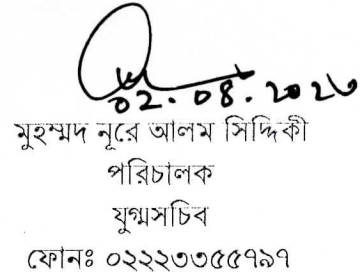 ০২.০৪.
মুহম্মদ নূরে আলম সিদ্দিকী
পরিচালক
যুগ্মসচিব
ফোনঃ ০২২২৩৩৫৫৭৯৭